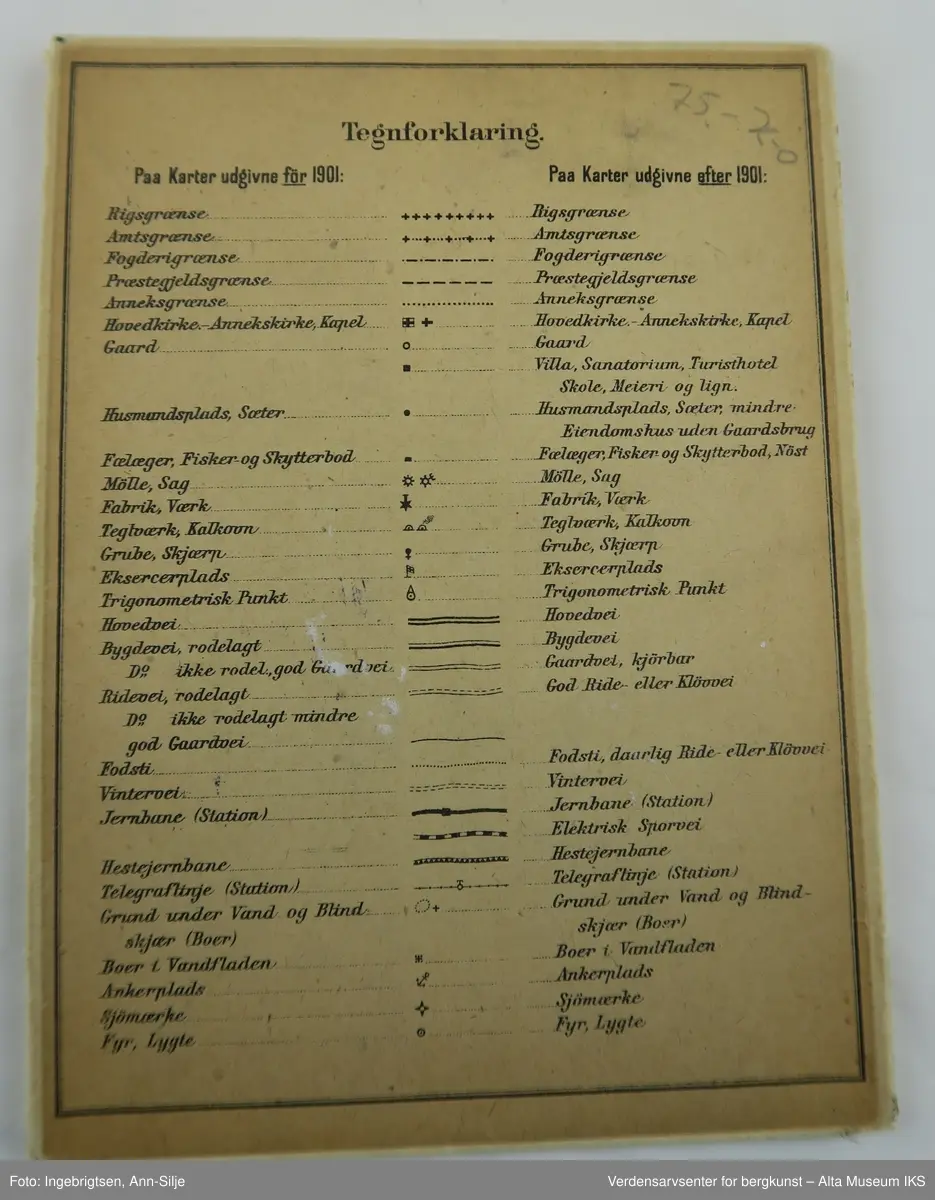 75.- 
Tegnforklaring.
Paa Karter udgivne för 1901:
Rigsgrænse
Amtsgrænse
Fogderigrænse
Præstegjeldsgrænse
Anneksgrænse
Hovedkirke.-Annekskirke, Kapel
Gaard
Husmandsplads, Sæter
Fælæger, Fisker- og Skytterbod
Mölle, Sag
Fabrik, Værk
Teglværk, Kalkovn
Grube, Skjærp
Eksercerplads
Trigonometrisk Punkt
Hovedvei
Bygdevei, rodelagt
Do ikke rodel., god Gaardvei
Ridevei, rodelagt
Do ikke rodelagt mindre
god Gaardvei
Fodsti
Vintervei
Jernbane (Station)
Hestejernbane
Telegraflinje (Station)
Grund under Vand og Blind-
skjær (Boer)
Boer i Vandfladen
Ankerplads
Sjömærke
Fyr, Lygte
Paa Karter udgivne efter 1901:
Rigsgrænse
Amtsgrænse
Fogderigrænse
Præstegjeldsgrænse
Anneksgrænse
Hovedkirke.-Annekskirke, Kapel
Gaard
Villa, Sanatorium, Turisthotel
Skole, Meieri og lign.
Husmandsplads, Sæter, mindre
Eiendomshus uden Gaardsbrug
Fælæger, Fisker og Skytterbod, Nöst
Mölle, Sag
Fabrik, Værk
Teglværk, Kalkovn
Grube, Skjærp
Eksercerplads
Trigonometrisk Punkt
Hovedvei
Bygdevei
Gaardvei, kjörbar
God Ride- eller Klövvei
Fodsti, daarlig Ride- eller Klövvei
Vintervei
Jernbane (Station)
Elektrisk Sporvei
Hestejernbane
Telegraflinje (Station)
Grund under Vand og Blind-
skjær (Boer)
Boer i Vandfladen
Ankerplads
Sjömærke
Fyr, Lygte
Foto: Ingebrigtsen, Ann-Silje
Verdensarvsenter for bergkunst – Alta Museum IKS